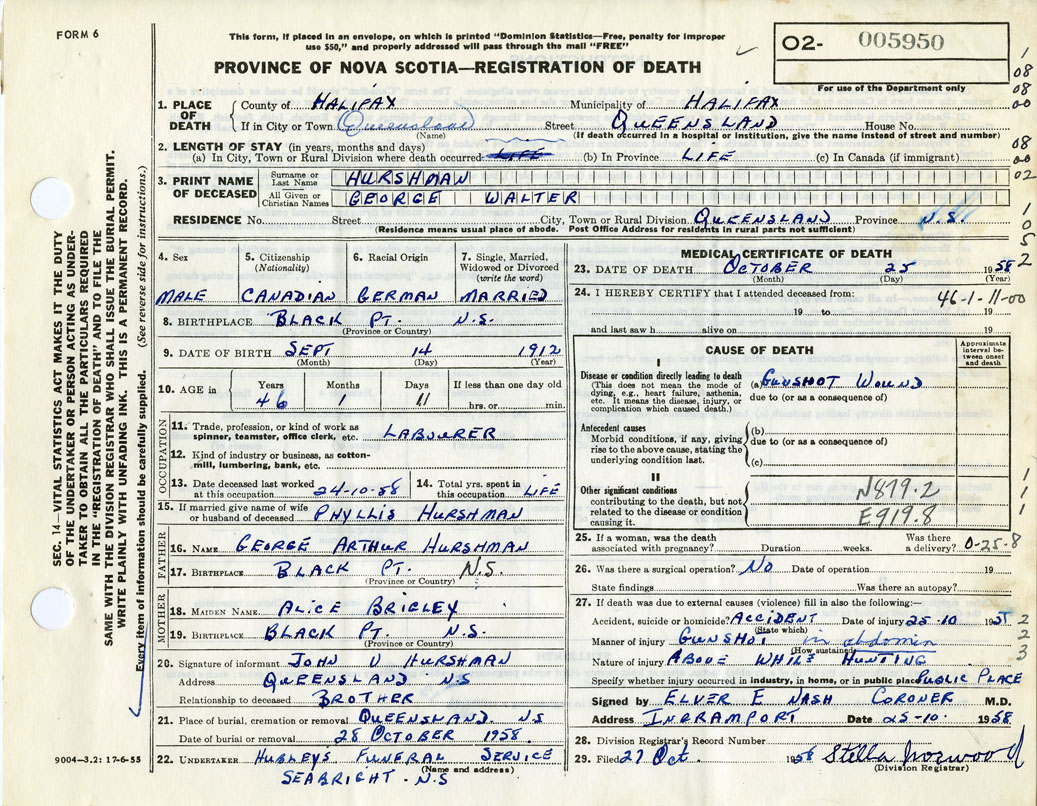 FORM 6
This form, if placed in an envelope, on which is printed "Dominion Statistics—Free, penalty for improper
use $50," and properly addressed will pass through the mail "FREE"
PROVINCE OF NOVA SCOTIA—REGISTRATION OF DEATH
02- 005950
For use of the Department only
1
08
08
00
08
00
02
1
0
5
2
1. PLACE OF DEATH
County of HALIFAX Municipality of HALIFAX
If in City or Town Queensland Street QUEENSLAND House No.
(Name) (If death occurred in a hospital or institution, give the name instead of street and number)
2. LENGTH OF STAY (in years, months and days)
(a) In City, Town or Rural Division where death occurred LIFE (b) In Province LIFE (c) In Canada (if immigrant)
3. PRINT NAME OF DECEASED
Surname or Last Name HURSHMAN
All Given or Christian Names GEORGE WALTER
RESIDENCE No. Street City, Town or Rural Division QUEENSLAND Province N.S.
(Residence means usual place of abode. Post Office Address for residents in rural parts not sufficient)
SEC. 14—VITAL STATISTICS ACT MAKES IT THE DUTY
OF THE UNDERTAKER OR PERSON ACTING AS UNDER-
TAKER TO OBTAIN ALL THE PARTICULARS REQUIRED
IN THE "REGISTRATION OF DEATH" AND TO FILE THE
SAME WITH THE DIVISION REGISTRAR WHO SHALL ISSUE THE BURIAL PERMIT.
WRITE PLAINLY WITH UNFADING INK. THIS IS A PERMANENT RECORD.
Every item of information should be carefully supplied. (See reverse side for instructions.)
4. Sex 5. Citizenship (Nationality) 6. Racial Origin 7. Single, Married, Widowed or Divorced (write the word)
MALE CANADIAN GERMAN MARRIED
8. BIRTHPLACE BLACK PT. N.S.
(Province or Country)
9. DATE OF BIRTH SEPT 14 1912
(Month) (Day) (Year)
10. AGE in Years Months Days If less than one day old
46 1 11 hrs. or min.
OCCUPATION
11. Trade, profession, or kind of work as
spinner, teamster, office clerk, etc. LABOURER
12. Kind of industry or business, as cotton-
mill, lumbering, bank, etc.
13. Date deceased last worked
at this occupation 24-10-58
14. Total yrs. spent in
this occupation LIFE
15. If married give name of wife
or husband of deceased PHYLLIS HURSHMAN
FATHER
16. NAME GEORGE ARTHUR HURSHMAN
17. BIRTHPLACE BLACK PT. N.S.
(Province or Country)
MOTHER
18. MAIDEN NAME ALICE BRIGLEY
19. BIRTHPLACE BLACK PT. N.S.
(Province or Country)
20. Signature of informant JOHN V HURSHMAN
Address QUEENSLAND N.S
Relationship to deceased BROTHER
21. Place of burial, cremation or removal QUEENSLAND. N.S
Date of burial or removal 28 OCTOBER 1958.
22. UNDERTAKER HUBLEYS FUNERAL SERVICE
(Name and address)
SEABRIGHT. N.S
9004-3.2: 17-6-55
MEDICAL CERTIFICATE OF DEATH
23. DATE OF DEATH OCTOBER 25 1958
(Month) (Day) (Year)
24. I HEREBY CERTIFY that I attended deceased from: 46-1-11-00
19 to 19
and last saw h alive on 19
CAUSE OF DEATH
Approximate interval between onset and death
I
Disease or condition directly leading to death
(This does not mean the mode of
dying, e.g., heart failure, asthenia,
etc. It means the disease, injury, or
complication which caused death.)
(a) GUNSHOT WOUND
due to (or as a consequence of)
Antecedent causes
Morbid conditions, if any, giving
rise to the above cause, stating the
underlying condition last.
(b)
due to (or as a consequence of)
(c)
II
Other significant conditions
contributing to the death, but not
related to the disease or condition
causing it.
N879.2
E919.8
1
1
1
25. If a woman, was the death
associated with pregnancy? Duration weeks. Was there
a delivery? 0-25-8
26. Was there a surgical operation? NO Date of operation 19
State findings Was there an autopsy?
27. If death was due to external causes (violence) fill in also the following:—
Accident, suicide or homicide? ACCIDENT Date of injury 25-10 1958
(State which)
Manner of injury GUNSHOT in abdomin
(How sustained)
Nature of injury ABOVE WHILE HUNTING
Specify whether injury occurred in industry, in home, or in public place PUBLIC PLACE
2
2
3
Signed by ELVER E NASH CORONER M.D.
Address INGRAMPORT Date 25-10- 1958
28. Division Registrar's Record Number
29. Filed 27 Oct. 1958 Stella Norwood
(Division Registrar)